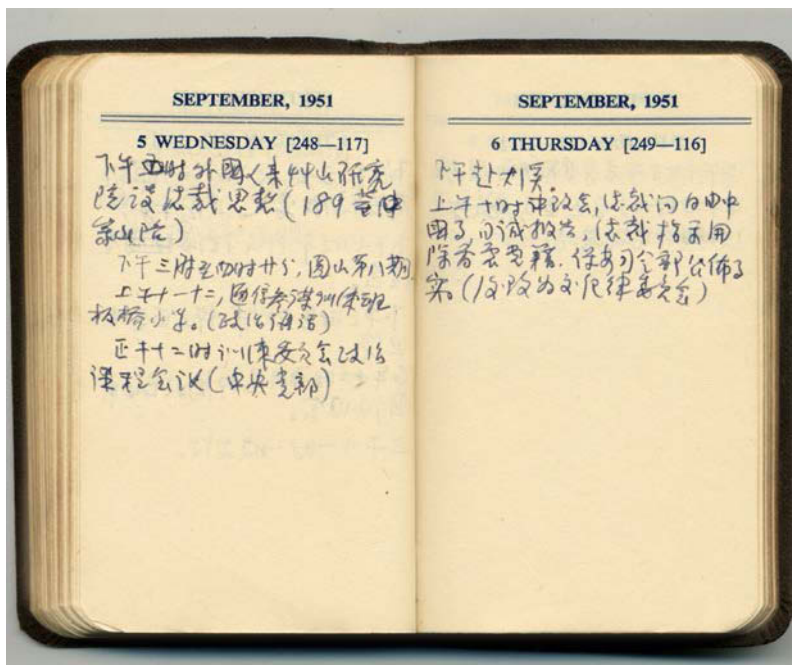 SEPTEMBER, 1951
5 WEDNESDAY [248—117]
下午四时外國人来草山研究
院谈總裁思想(189
)
下午三时至四时廿分,圆山第八期
上午十一十二,通信参谋训练班
板橋小学。(政治讲话)
正午十二时训练委员会政治
课程会议(中央党部)
SEPTEMBER, 1951
6 THURSDAY [249—116]
下午赴大溪。
上午十时中改会,總裁问自由中
國事,自诚报告,總裁指示开
除者党籍,保安司令部公佈事
实。(后改为交纪律委员会)